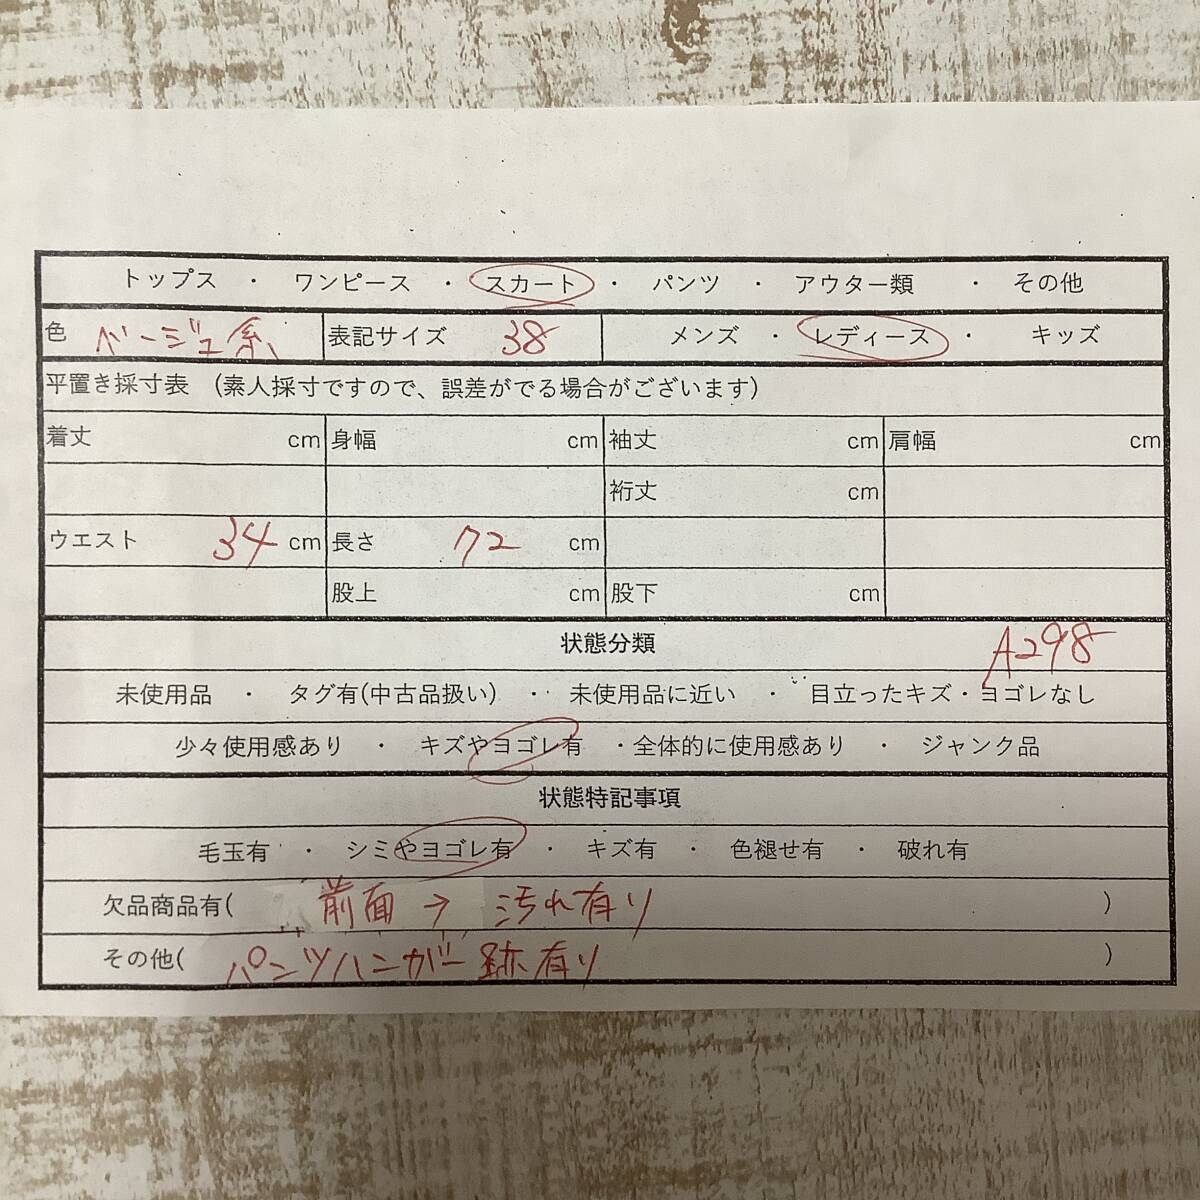 トップス ・ ワンピース ・ スカート ・ パンツ ・ アウター類 ・ その他
色 ベージュ系 表記サイズ 38 メンズ ・ レディース ・ キッズ
平置き採寸表 (素人採寸ですので、誤差がでる場合がございます)
着丈 cm 身幅 cm 袖丈 cm 肩幅 cm
裄丈 cm
ウエスト 34 cm 長さ 72 cm
股上 cm 股下 cm
状態分類 A298
未使用品 ・ タグ有(中古品扱い) ・ 未使用品に近い ・ 目立ったキズ・ヨゴレなし
少々使用感あり ・ キズやヨゴレ有 ・全体的に使用感あり ・ ジャンク品
状態特記事項
毛玉有 ・ シミやヨゴレ有 ・ キズ有 ・ 色褪せ有 ・ 破れ有
欠品商品有( 前面 → 汚れ有り )
その他( パンツハンガー跡有り )